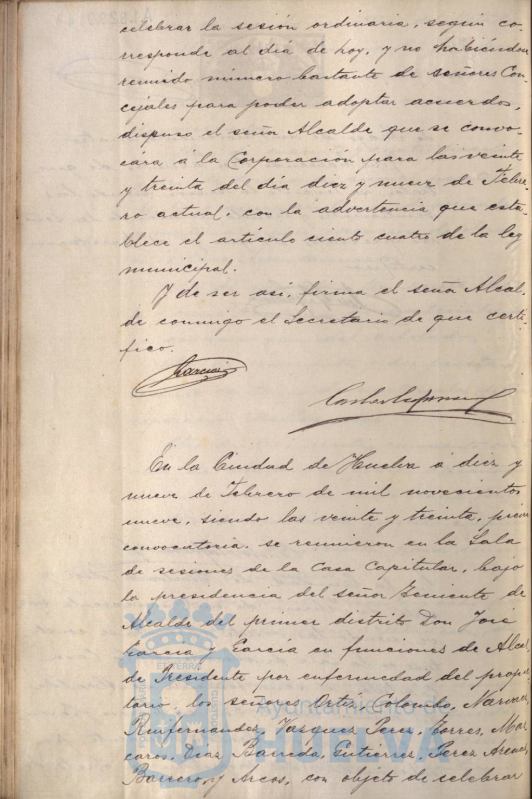 celebrar la sesión ordinaria, según co-
rresponde al día de hoy, y no habiéndose
reunido número bastante de señores Con-
cejales para poder adoptar acuerdos,
dispuso el señor Alcalde que se convo-
cára á la Corporación para las veinte
y treinta del día diez y nueve de Febre-
ro actual, con la advertencia que esta-
blece el artículo ciento cuatro de la ley
municipal.
Y de ser así, firma el señor Alcal-
de conmigo el Secretario de que certi-
fico.
García
En la Ciudad de Huelva á diez y
nueve de Febrero de mil novecientos
nueve, siendo las veinte y treinta, previa
convocatoria, se reunieron en la Sala
de sesiones de la Casa Capitular, bajo
la presidencia del señor Teniente de
Alcalde del primer distrito Don José
García y García en funciones de Alcal-
de Presidente por enfermedad del propie-
tario, los señores Ortiz, Colombo, Narvaez,
Ruifernandez, Vasquez Perez, Torres, Mor
caros, Diaz Barreda, Gutierrez, Perez
Barrero, y Arcos, con objeto de celebrar
Ayuntamiento de
HUELVA